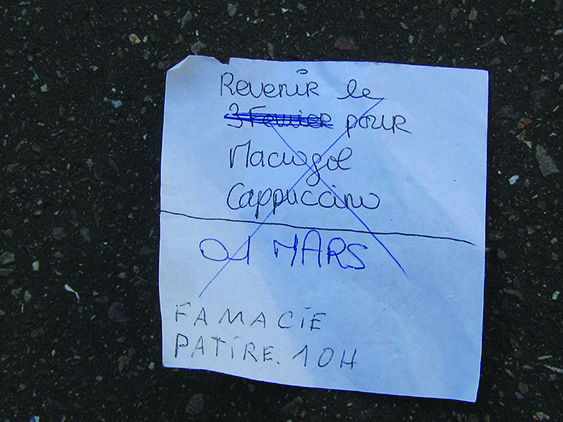 Revenir le
3 Fevrier pour
Macrogol
Cappuccino
01 MARS
FAMACIE
PATIRE. 10H